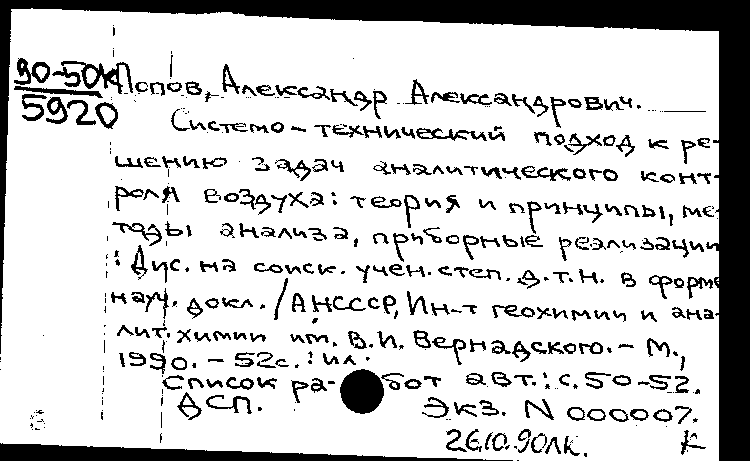 90-50К
5920
Попов, Александр Александрович.
Системо-технический подход к ре-
шению задач аналитического конт-
роля воздуха: теория и принципы, ме-
тоды анализа, приборные реализации
: Дис. на соиск. учен. степ. д.т.н. в форме
науч. докл. / АНСССР, Ин-т геохимии и ана-
лит. химии им. В.И. Вернадского. - М.,
1990. - 52с. : ил.
Список ра- бот авт.: с. 50-52.
ДСП. Экз. N 000007.
26.10.90ЛК. К